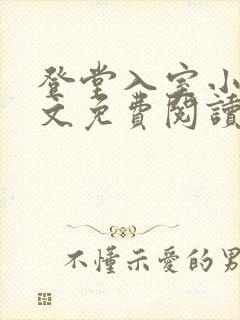 登堂入室小
文免費閱讀
不懂示愛的男